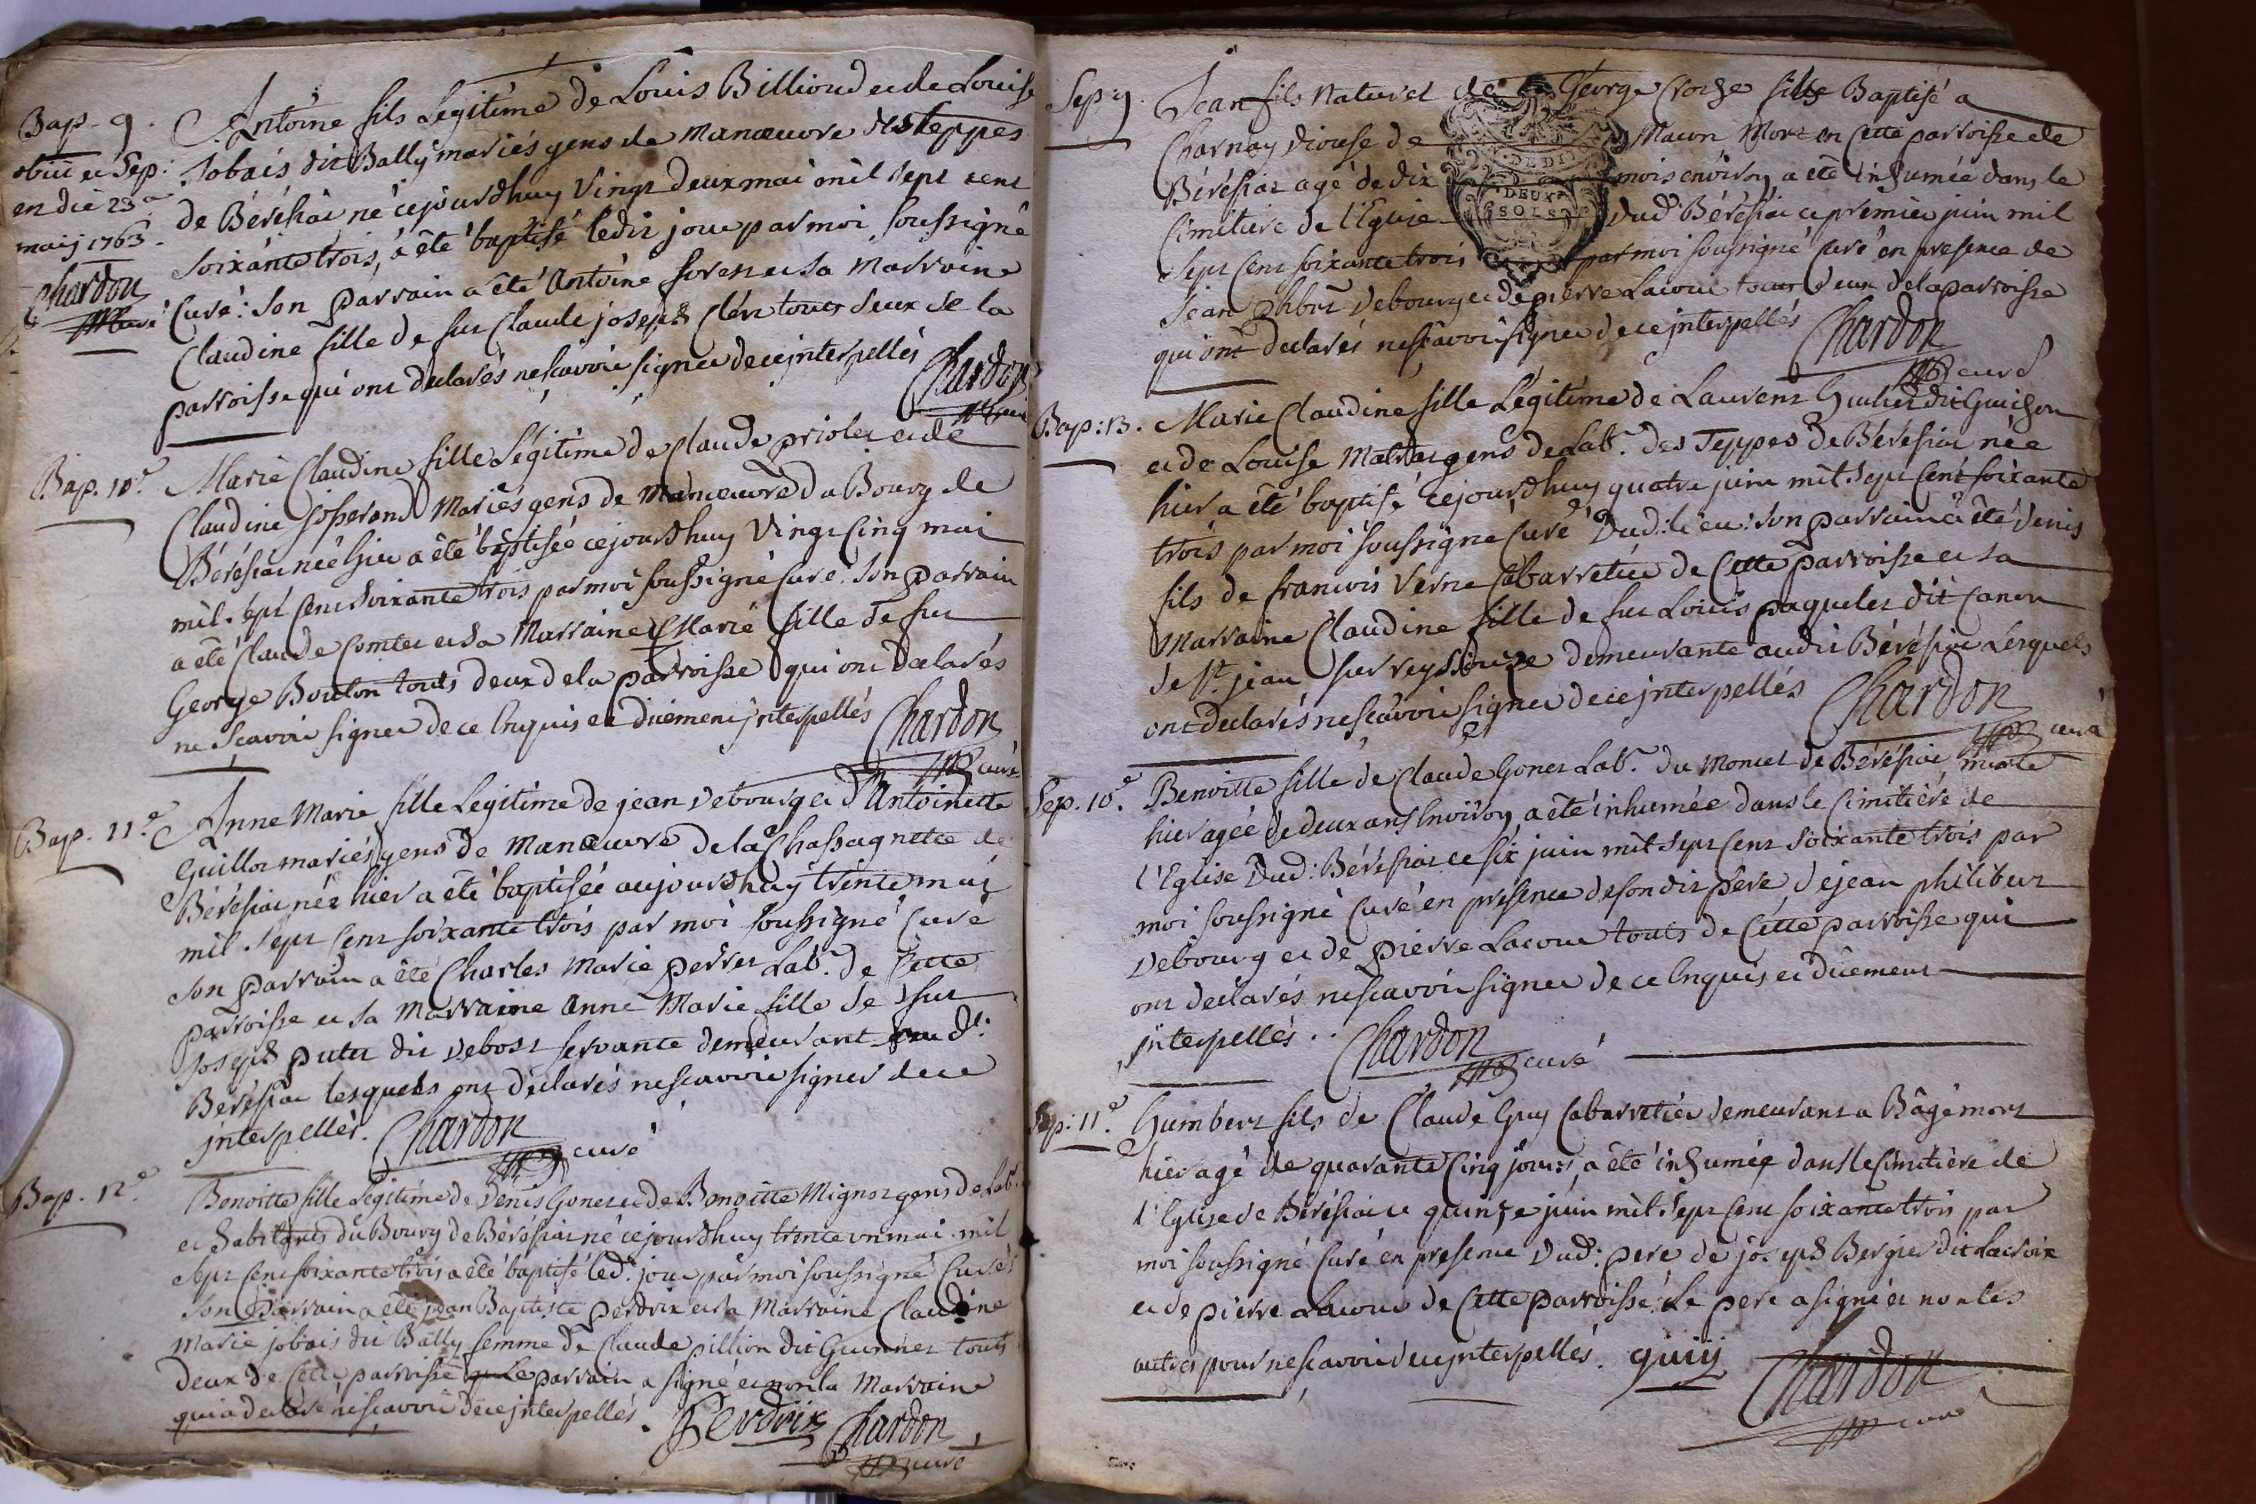 Bap. 9.
obiit et Sep:
en die 23a
maij 1763.
Chardon
curé
Antoine fils Legitime de Louis Billioud et de Louise
Jobais dit Bally mariés gens de manœuvre des teppes
de Béréziat né cejourdhuy vingt deux mai mil sept cent
soixante trois, a été baptisé ledit jour par moi soussigné
Curé: son parrain a été Antoine et sa Marraine
Claudine fille de feu Claude joseph tous deux de la
parroisse qui ont declarés nescavoir signer de ce jnterpellés Chardon
curé
Bap. 10.e
Marie Claudine fille Légitime de Claude priolet et de
Claudine josserand Mariés gens de Manœuvre du Bourg de
Béréziat née hier a été baptisée cejourdhuy vingt Cinq mai
mil sept cent soixante trois par moi soussigné Curé: Son parrain
a été Claude Comtet et sa Marraine Marie fille de feu
George Boulon touts deux de la parroisse qui ont declarés
ne Scavoir signer de ce Enquis et düement jnterpellés Chardon
curé
Bap. 11.e
Anne Marie fille Legitime de jean debourg et d'Antoinette
Guillot mariés gens de manœuvre de la Chassagnette de
Béréziat née hier a été baptisée aujourdhuy trente mai
mil sept cent soixante trois par moi soussigné Curé
son parrain a été Charles Marie perret Lab.r de Cette
parroisse et sa Marraine Anne Marie fille de feu
Joseph putet dit debost servante demeurant aud.t
Béréziat lesquels ont déclarés nescavoir signer de ce
jnterpellés. Chardon
curé
Bap. 12.e
Benoitte fille Légitime de Denis Gonet et de Benoitte Mignot gens de Lab.r
et habitants du Bourg de Béréziat né cejourdhuy trente un mai mil
sept cent soixante trois a été baptisé led. jour par moi soussigné Curé:
son parrain a été jean Baptiste perdrix et sa Marraine Claudine
Marie jobais dit Bally femme de Claude pillion dit Guonnet touts
deux de Cette parroisse Le parrain a signé et non la Marraine
qui a déclaré nescavoir de ce jnterpellés. Perdrix Chardon
curé
Sep: 9.
Jean fils Naturel de George Croize Baptisé a
Charnay diocese de Macon Mort en Cette parroisse de
Béréziat agé de dix mois environ a été inhumée dans le
Cimitiere de l'Eglise dud: Béréziat ce premier juin mil
sept cent soixante trois par moi soussigné Curé en presence de
jean phbert debourg et de pierre Lacour touts deux de la parroisse
qui ont declarés nescavoir signer de ce jnterpellés Chardon
curé
DEUX
SOLS
Bap: 13.
Marie Claudine fille Légitime de Laurent dit Guichon
et de Louise gens de Lab.r des Teppes de Béréziat née
hier a été baptisé cejourdhuy quatre juin mil sept cent soixante
trois par moi soussigné Curé Dud: lieu: son parrain a été denis
fils de francois Verne Cabarretier de Cette parroisse et sa
Marraine Claudine fille de feu Louis paquelet dit Canon
de St. jean sur reyssouze demeurante audit Béréziat Lesquels
ont declarés nescavoir signer de ce jnterpellés Chardon
curé
Sep. 10.e
Benoitte fille de Claude Gonet Lab.r du Moncet de Béréziat, morte
hier agée de deux ans Environ a été inhumée dans le Cimitière de
l'Eglise Dud: Béréziat ce six juin mil sept cent soixante trois par
moi soussigné Curé en présence de son dit pere de jean philibert
debourg et de pierre Lacour touts de Cette parroisse qui
ont declarés nescavoir signer de ce Enquis et düement
jnterpellés. Chardon
curé
Sep: 11.e
Humbert fils de Claude Guy Cabarretier demeurant a Bâgé mort
hier agé de quarante Cinq jours, a été inhumée dans le Cimitière de
l'Eglise de Béréziat ce quinze juin mil sept cent soixante trois par
moi soussigné Curé en presence Dud: pere de joseph Bergier dit Lacroix
et de pierre Lacour de Cette parroisse Le pere a signé et non les
autres pour nescavoir de ce jnterpellés. guiy Chardon
curé